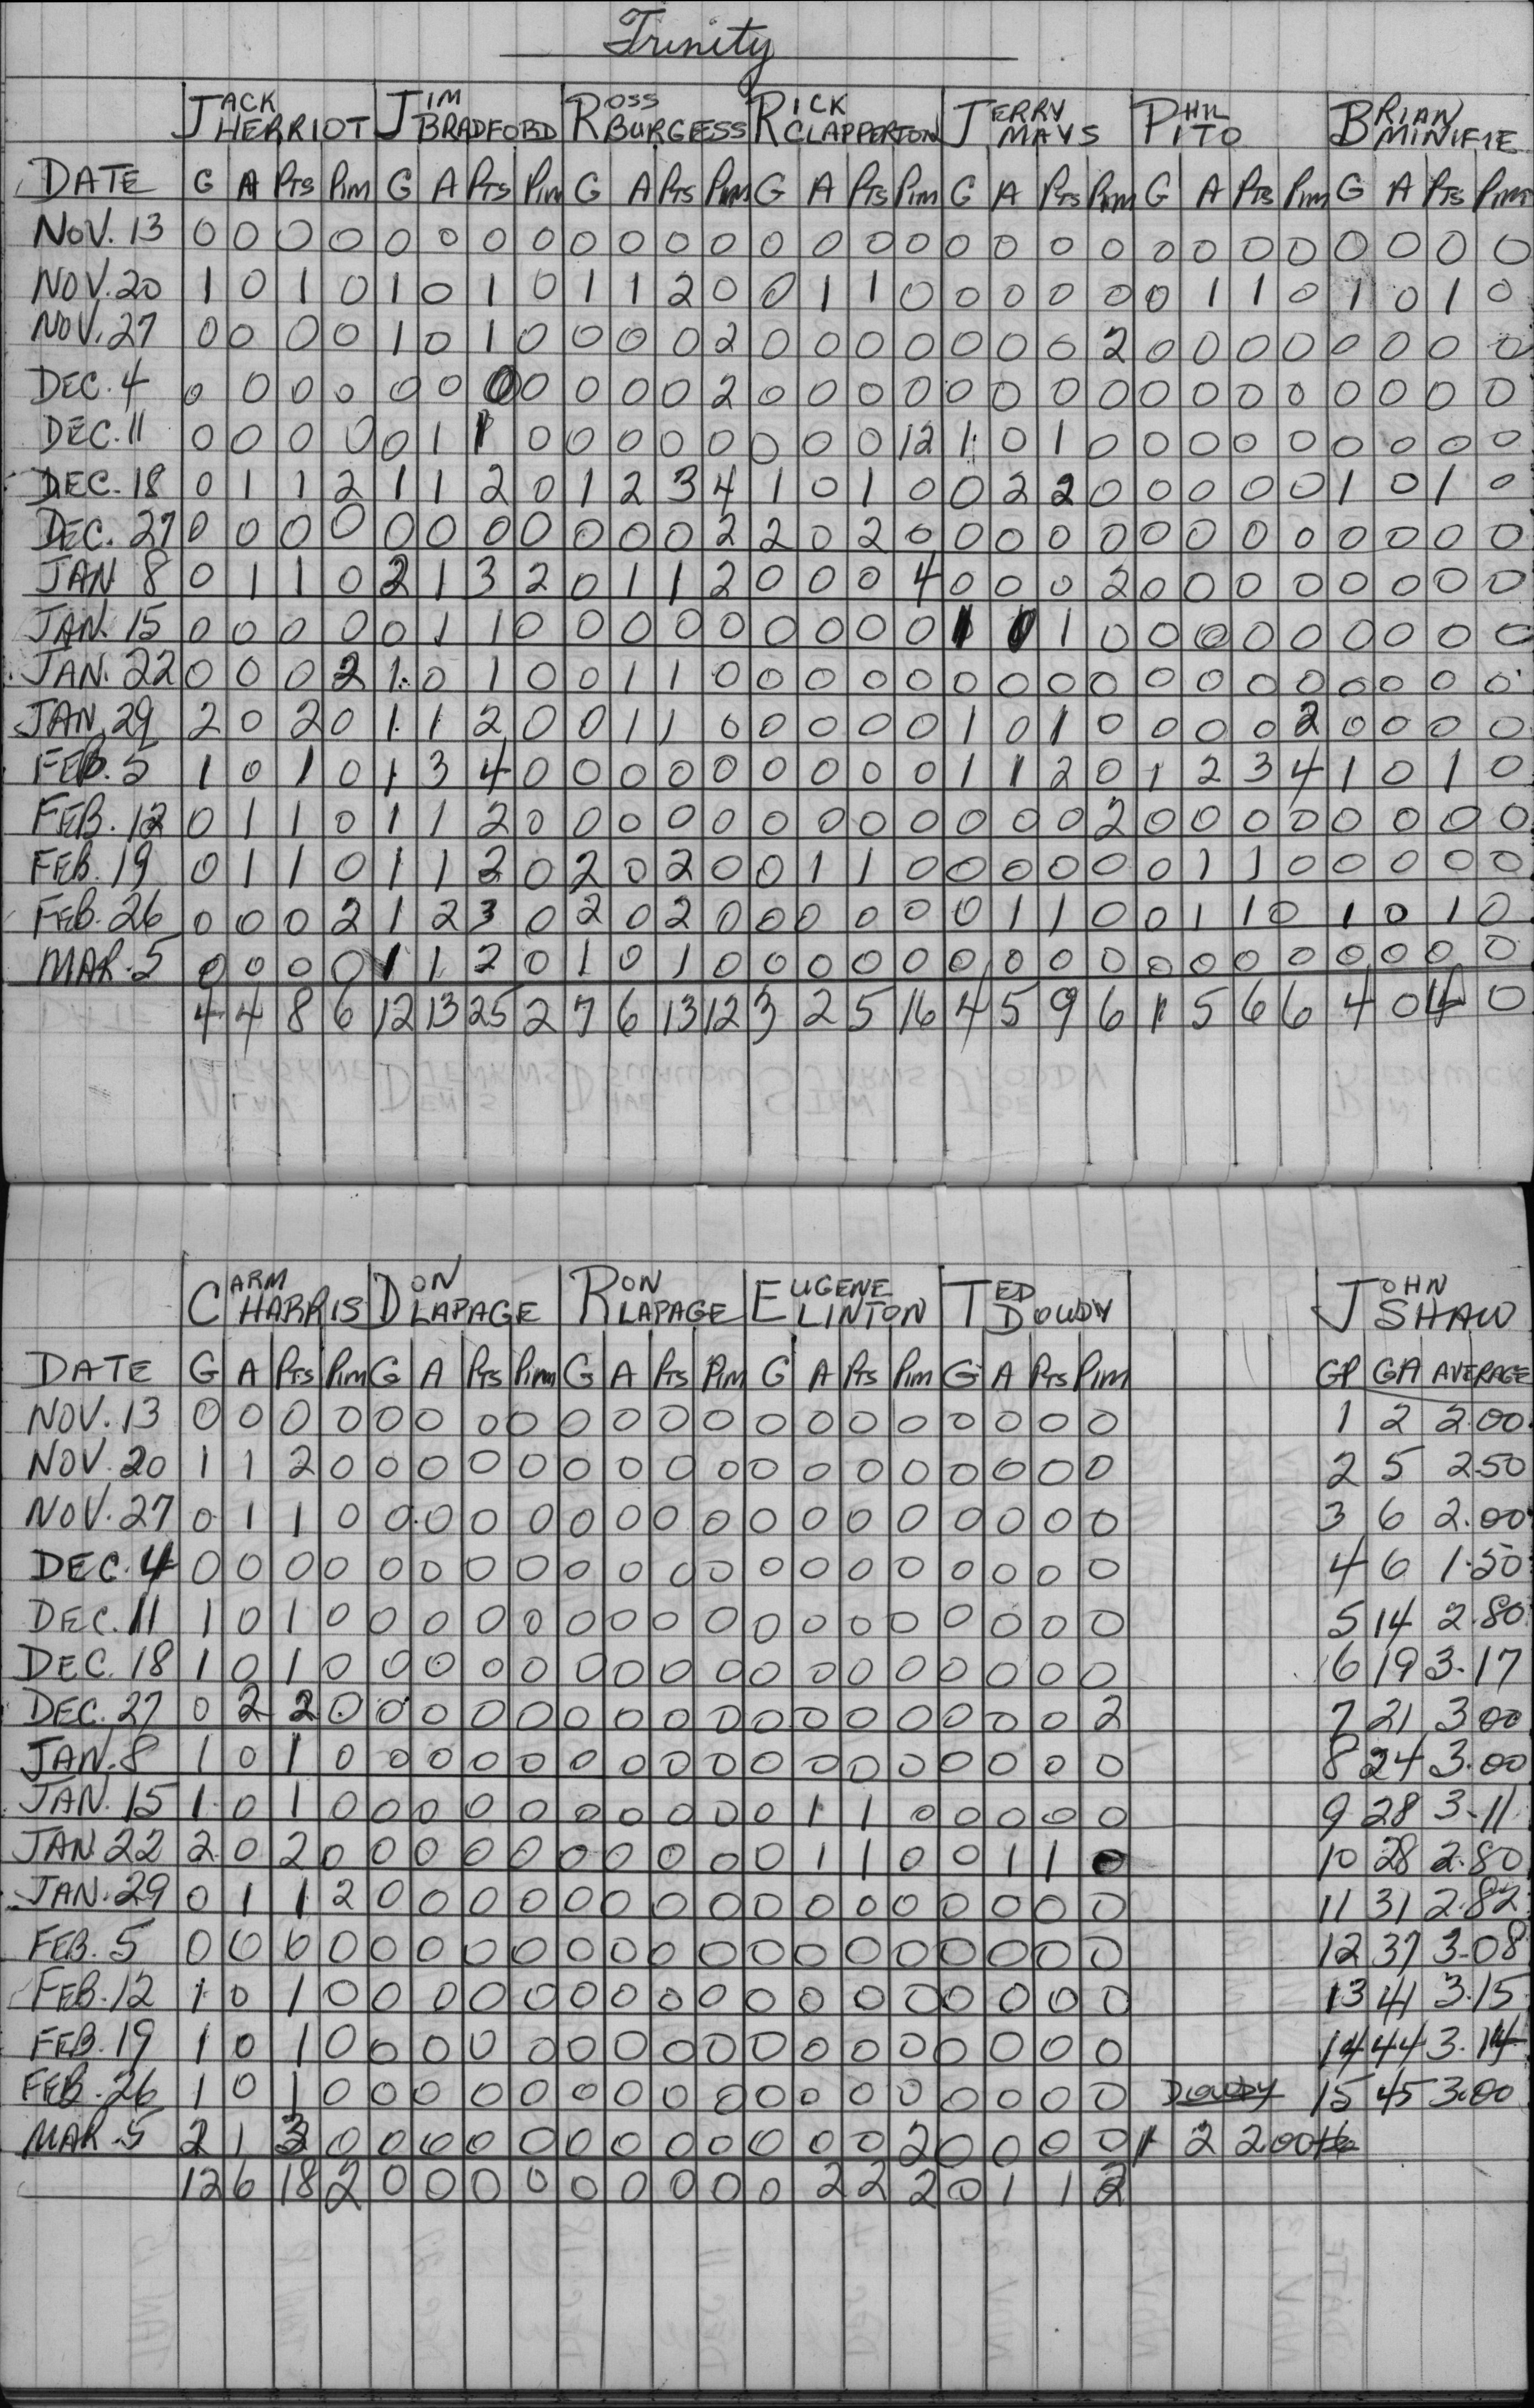 Trinity
JACK HERRIOT JIM BRADFORD ROSS BURGESS RICK CLAPPERTON JERRY MAYS PHIL PITO BRIAN MINIFIE
DATE G A PTS PIM G A PTS PIM G A PTS PIM G A PTS PIM G A PTS PIM G A PTS PIM G A PTS PIM
NOV. 13 0 0 0 0 0 0 0 0 0 0 0 0 0 0 0 0 0 0 0 0 0 0 0 0 0 0 0 0
NOV. 20 1 0 1 0 1 0 1 0 1 1 2 0 0 1 1 0 0 0 0 0 0 1 1 0 1 0 1 0
NOV. 27 0 0 0 0 1 0 1 0 0 0 0 2 0 0 0 0 0 0 0 2 0 0 0 0 0 0 0 0
DEC. 4 0 0 0 0 0 0 0 0 0 0 0 2 0 0 0 0 0 0 0 0 0 0 0 0 0 0 0 0
DEC. 11 0 0 0 0 0 1 1 0 0 0 0 0 0 0 0 12 1 0 1 0 0 0 0 0 0 0 0 0
DEC. 18 0 1 1 2 1 1 2 0 1 2 3 4 1 0 1 0 0 2 2 0 0 0 0 0 1 0 1 0
DEC. 27 0 0 0 0 0 0 0 0 0 0 0 2 2 0 2 0 0 0 0 0 0 0 0 0 0 0 0 0
JAN 8 0 1 1 0 2 1 3 2 0 1 1 2 0 0 0 4 0 0 0 2 0 0 0 0 0 0 0 0
JAN. 15 0 0 0 0 0 1 1 0 0 0 0 0 0 0 0 0 1 0 1 0 0 0 0 0 0 0 0 0
JAN. 22 0 0 0 2 1 0 1 0 0 1 1 0 0 0 0 0 0 0 0 0 0 0 0 0 0 0 0 0
JAN. 29 2 0 2 0 1 1 2 0 0 1 1 0 0 0 0 0 1 0 1 0 0 0 0 2 0 0 0 0
FEB. 5 1 0 1 0 1 3 4 0 0 0 0 0 0 0 0 0 1 1 2 0 1 2 3 4 1 0 1 0
FEB. 12 0 1 1 0 1 1 2 0 0 0 0 0 0 0 0 0 0 0 0 2 0 0 0 0 0 0 0 0
FEB. 19 0 1 1 0 1 1 2 0 2 0 2 0 0 1 1 0 0 0 0 0 0 1 1 0 0 0 0 0
FEB. 26 0 0 0 2 1 2 3 0 2 0 2 0 0 0 0 0 0 1 1 0 0 1 1 0 1 0 1 0
MAR. 5 0 0 0 0 1 1 2 0 1 0 1 0 0 0 0 0 0 0 0 0 0 0 0 0 0 0 0 0
4 4 8 6 12 13 25 2 7 6 13 12 3 2 5 16 4 5 9 6 1 5 6 6 4 0 4 0
CARM HARRIS DON LAPAGE RON LAPAGE EUGENE LINTON TED DOWDY JOHN SHAW
DATE G A PTS PIM G A PTS PIM G A PTS PIM G A PTS PIM G A PTS PIM GP GA AVERAGE
NOV. 13 0 0 0 0 0 0 0 0 0 0 0 0 0 0 0 0 0 0 0 0 1 2 2.00
NOV. 20 1 1 2 0 0 0 0 0 0 0 0 0 0 0 0 0 0 0 0 0 2 5 2.50
NOV. 27 0 1 1 0 0 0 0 0 0 0 0 0 0 0 0 0 0 0 0 0 3 6 2.00
DEC. 4 0 0 0 0 0 0 0 0 0 0 0 0 0 0 0 0 0 0 0 0 4 6 1.50
DEC. 11 1 0 1 0 0 0 0 0 0 0 0 0 0 0 0 0 0 0 0 0 5 14 2.80
DEC. 18 1 0 1 0 0 0 0 0 0 0 0 0 0 0 0 0 0 0 0 0 6 19 3.17
DEC. 27 0 2 2 0 0 0 0 0 0 0 0 0 0 0 0 0 0 0 0 2 7 21 3.00
JAN. 8 1 0 1 0 0 0 0 0 0 0 0 0 0 0 0 0 0 0 0 0 8 24 3.00
JAN. 15 1 0 1 0 0 0 0 0 0 0 0 0 0 1 1 0 0 0 0 0 9 28 3.11
JAN 22 2 0 2 0 0 0 0 0 0 0 0 0 0 1 1 0 0 1 1 0 10 28 2.80
JAN. 29 0 1 1 2 0 0 0 0 0 0 0 0 0 0 0 0 0 0 0 0 11 31 2.82
FEB. 5 0 0 0 0 0 0 0 0 0 0 0 0 0 0 0 0 0 0 0 0 12 37 3.08
FEB. 12 1 0 1 0 0 0 0 0 0 0 0 0 0 0 0 0 0 0 0 0 13 41 3.15
FEB. 19 1 0 1 0 0 0 0 0 0 0 0 0 0 0 0 0 0 0 0 0 14 44 3.14
FEB. 26 1 0 1 0 0 0 0 0 0 0 0 0 0 0 0 0 0 0 0 0 DOWDY 15 45 3.00
MAR. 5 2 1 3 0 0 0 0 0 0 0 0 0 0 0 0 2 0 0 0 0 1 2 2.00
12 6 18 2 0 0 0 0 0 0 0 0 0 2 2 2 0 1 1 2